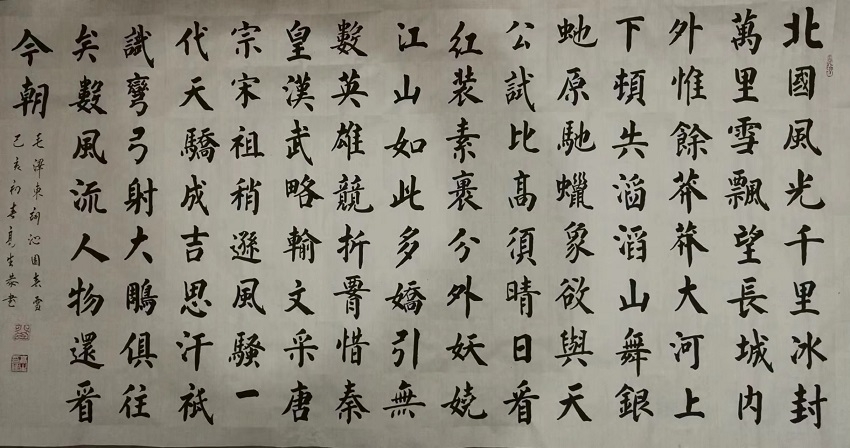 北國風光千里冰封
萬里雪飄望長城內
外惟餘莽莽大河上
下頓失滔滔山舞銀
虵原馳蠟象欲與天
公試比高須晴日看
紅装素裹分外妖嬈
江山如此多嬌引無
數英雄競折腰惜秦
皇漢武略輸文采唐
宗宋祖稍遜風騷一
代天驕成吉思汗祇
識彎弓射大鵰俱往
矣數風流人物還看
今朝
毛澤東詞沁園春雪
己亥初春亮生恭書